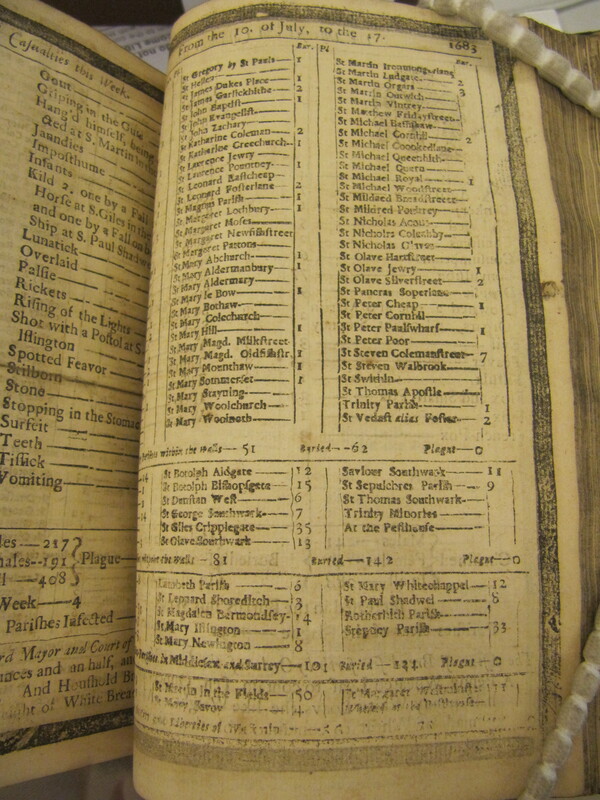 Casualties this Week.
Gout
Griping in the Guts
Hang'd himself, being
cted at S. Martin in
Jaundies
Imposthume
Infants
Kild 2. one by a Fall
Horse at S. Giles in the
and one by a Fall
Ship at S. Paul Shad
Lunatick
Overlaid
Palsie
Rickets
Rising of the Lights
Shot with a Pistol at S
Islington
Spotted Feavor
Stilborn
Stone
Stopping in the Stomac
Surfeit
Teeth
Tissick
Vomiting
les — 217
males — 191 } Plague
ll — 408
Week — 4
Parishes Infected
rd Mayor and Court of
unces and an half, an
And Houshold Br
eight of White Brea
From the 10. of July, to the 17. 1683
Bur. Pl
St Gregory by St Pauls — 1
St Hellen
St James Dukes Place — 1
St James Garlickhithe — 2
St John Baptist — 1
St John Evangelist
St John Zachary
St Katharine Coleman — 2
St Katharine Creechurch — 1
St Lawrence Jewry
St Laurence Pountney — 1
St Leonard Eastcheap
St Leonard Fosterlane — 2
St Magnus Parish — 1
St Margaret Lothbury — 1
St Margaret Moses
St Margaret Newfishstreet
St Margaret Pattons
St Mary Abchurch — 1
St Mary Aldermanbury — 1
St Mary Aldermary
St Mary le Bow — 1
St Mary Bothaw
St Mary Colechurch
St Mary Hill — 1
St Mary Magd. Milkstreet
St Mary Magd. Oldfishstr. 1
St Mary Mounthaw — 1
St Mary Sommerset — 1
St Mary Stayning
St Mary Woolchurch
St Mary Woolnoth
Bur.
St Martin Ironmongerlane
St Martin Ludgate
St Martin Orgars
St Martin Outwich
St Martin Vintrey
St Matthew Fridaystreet
St Michael Bassishaw
St Michael Cornhil — 2
St Michael Crookedlane
St Michael Queenhith
St Michael Quern
St Michael Royal — 1
St Michael Woodstreet
St Mildred Breadstreet
St Mildred Poultrey
St Nicholas Acons
St Nicholas Coleabby
St Nicholas Olaves
St Olave Hartstreet
St Olave Jewry — 1
St Olave Silverstreet — 2
St Pancras Soperlane
St Peter Cheap — 1
St Peter Cornhil
St Peter Paulswharf — 1
St Peter Poor
St Steven Colemanstreet — 7
St Steven Walbrook
St Swithin
St Thomas Apostle
Trinity Parish — 1
St Vedast alias Foster — 2
Parishes within the Walls — 51 Buried — 62 Plague — 0
St Botolph Aldgate — 12
St Botolph Bishopsgate — 15
St Dunstan West — 6
St George Southwark — 7
St Giles Cripplegate — 35
St Olave Southwark — 13
Saviour Southwark — 11
St Sepulchres Parish — 9
St Thomas Southwark
Trinity Minories
At the Pesthouse
without the Walls — 81 Buried — 142 Plague — 0
Lambeth Parish — 6
St Leonard Shoreditch — 3
St Magdalen Bermondsey — 14
St Mary Islington — 1
St Mary Newington — 8
St Mary Whitechappel — 12
St Paul Shadwel — 8
Rotherhith Parish
Stepney Parish — 33
Parishes in Middlesex and Surrey — 101 Buried Plague — 0
St Martin in the Fields — 50
St Mary Savoy
St Margaret Westminster